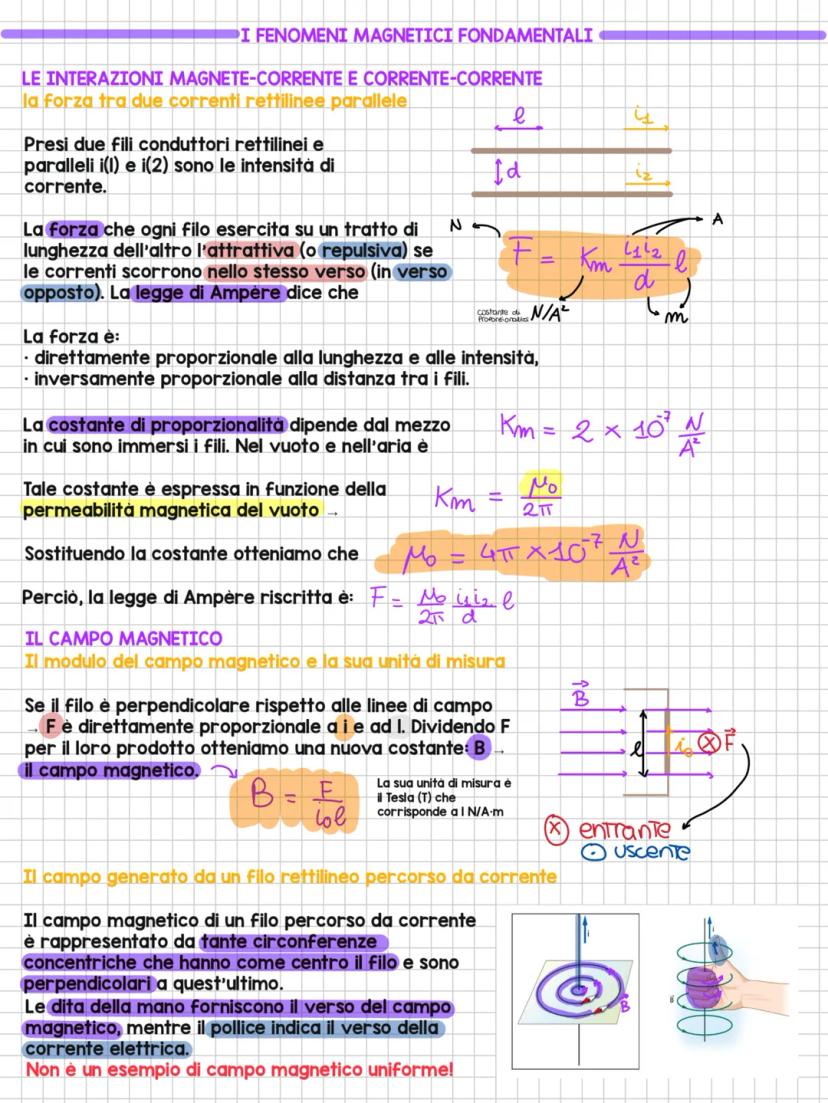 I FENOMENI MAGNETICI FONDAMENTALI
LE INTERAZIONI MAGNETE-CORRENTE E CORRENTE-CORRENTE
la forza tra due correnti rettilinee parallele
l
i₁
Presi due fili conduttori rettilinei e
paralleli i(1) e i(2) sono le intensità di
corrente.
d
i₂
La forza che ogni filo esercita su un tratto di
lunghezza dell'altro l'attrattiva (o repulsiva) se
le correnti scorrono nello stesso verso (in verso
opposto). La legge di Ampère dice che
N
A
F = Km i₁i₂/d l
costante di
proporzionalità
N/A²
m
La forza è:
· direttamente proporzionale alla lunghezza e alle intensità,
· inversamente proporzionale alla distanza tra i fili.
La costante di proporzionalità dipende dal mezzo
in cui sono immersi i fili. Nel vuoto e nell'aria è
Km = 2 × 10⁻⁷ N/A²
Tale costante è espressa in funzione della
permeabilità magnetica del vuoto →
Km = μ₀/2π
Sostituendo la costante otteniamo che
μ₀ = 4π × 10⁻⁷ N/A²
Perciò, la legge di Ampère riscritta è: F = μ₀/2π i₁i₂/d l
IL CAMPO MAGNETICO
Il modulo del campo magnetico e la sua unità di misura
Se il filo è perpendicolare rispetto alle linee di campo
→ F è direttamente proporzionale a i e ad l. Dividendo F
per il loro prodotto otteniamo una nuova costante: B →
il campo magnetico.
B = F/i₀l
La sua unità di misura è
il Tesla (T) che
corrisponde a 1 N/A·m
B
l
i₀
F
x entrante
· uscente
Il campo generato da un filo rettilineo percorso da corrente
Il campo magnetico di un filo percorso da corrente
è rappresentato da tante circonferenze
concentriche che hanno come centro il filo e sono
perpendicolari a quest'ultimo.
Le dita della mano forniscono il verso del campo
magnetico, mentre il pollice indica il verso della
corrente elettrica.
Non è un esempio di campo magnetico uniforme!
i
B
i
B